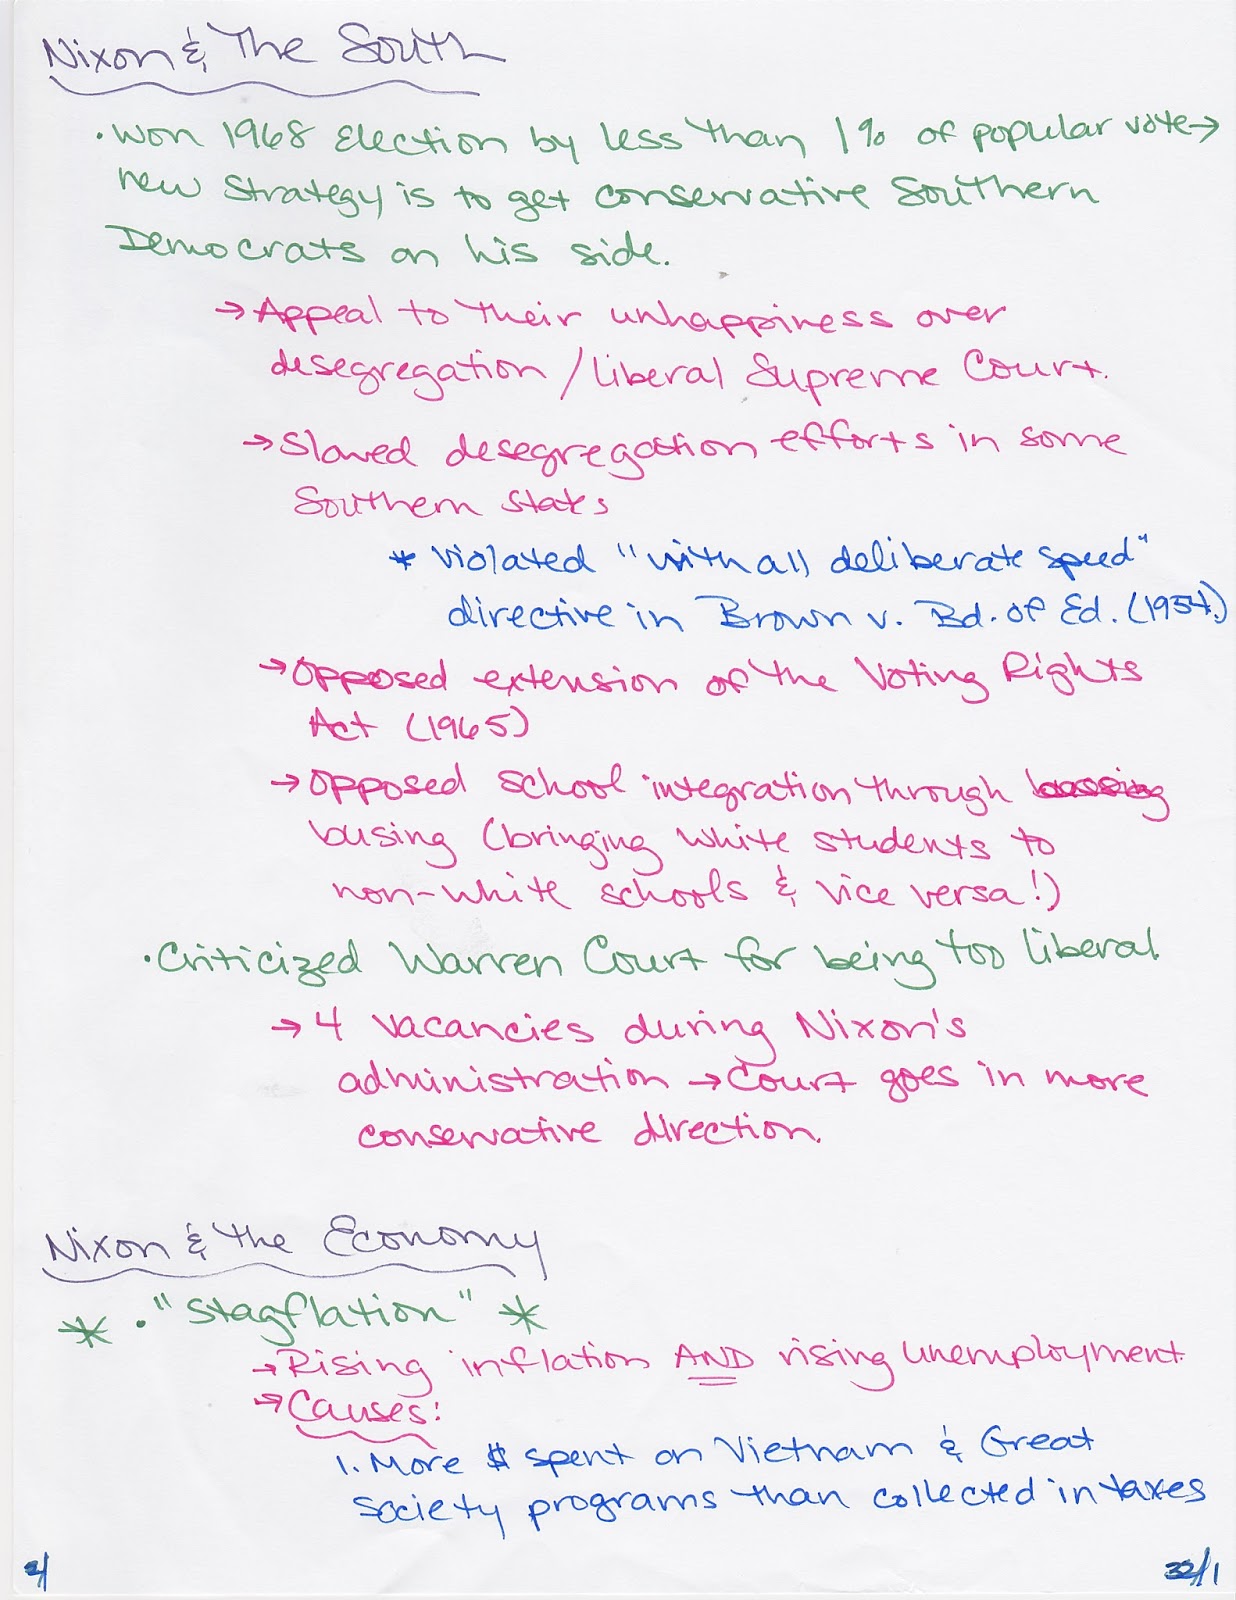 Nixon & The South
• Won 1968 Election by less than 1% of popular vote →
new strategy is to get conservative Southern
Democrats on his side.
→ Appeal to their unhappiness over
desegregation / liberal Supreme Court.
→ Slowed desegregation efforts in some
Southern states
* Violated "with all deliberate speed"
directive in Brown v. Bd. of Ed. (1954.)
→ Opposed extension of the Voting Rights
Act (1965)
→ Opposed school integration through
busing (bringing white students to
non-white schools & vice versa!)
• Criticized Warren Court for being too liberal
→ 4 vacancies during Nixon's
administration → Court goes in more
conservative direction.
Nixon & the Economy
* • "Stagflation" *
→ Rising inflation AND rising unemployment.
→ Causes:
1. More $ spent on Vietnam & Great
Society programs than collected in taxes